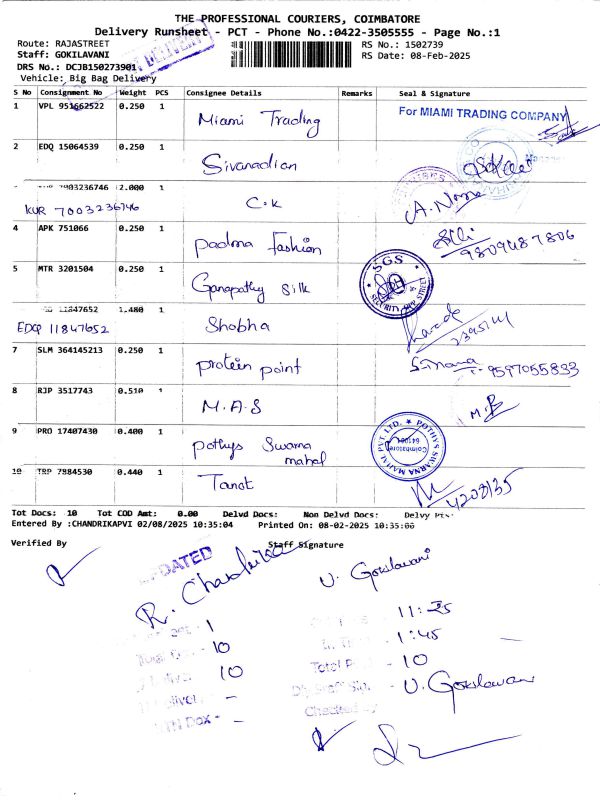 THE PROFESSIONAL COURIERS, COIMBATORE
Delivery Runsheet - PCT - Phone No.:0422-3505555 - Page No.:1
Route: RAJASTREET
RS No.: 1502739
Staff: GOKILAVANI
RS Date: 08-Feb-2025
DRS No.: DCJB150273901
Vehicle: Big Bag Delivery
S No Consignment No Weight PCS Consignee Details Remarks Seal & Signature
1 VPL 951662522 0.250 1 Miami Trading For MIAMI TRADING COMPANY
2 EDQ 15064539 0.250 1 Sivanadian
7003236746 2.000 1 C.K
KUR 7003236746
4 APK 751066 0.250 1 padma Fashion 9809487806
5 MTR 3201504 0.250 1 Ganapathy Silk SGS SECURITY
11847652 1.480 1 Shobha
EDQ 11847652
7 SLM 364145213 0.250 1 protein point 9597055833
8 RJP 3517743 0.510 1 M.A.S
9 PRO 17407430 0.400 1 pothys Swarna mahal POTHYS SWARNA MAHAL PVT. LTD. Coimbatore
10 TRP 7884530 0.440 1 Tanot
Tot Docs: 10 Tot COD Amt: 0.00 Delvd Docs: Non Delvd Docs: Delvy Pts:
Entered By :CHANDRIKAPVI 02/08/2025 10:35:04 Printed On: 08-02-2025 10:35:00
Verified By Staff Signature
UPDATED
U. Gokilavani
11:25
1
1:45
10
Total 10
10
U. Gokilavani
Checked by